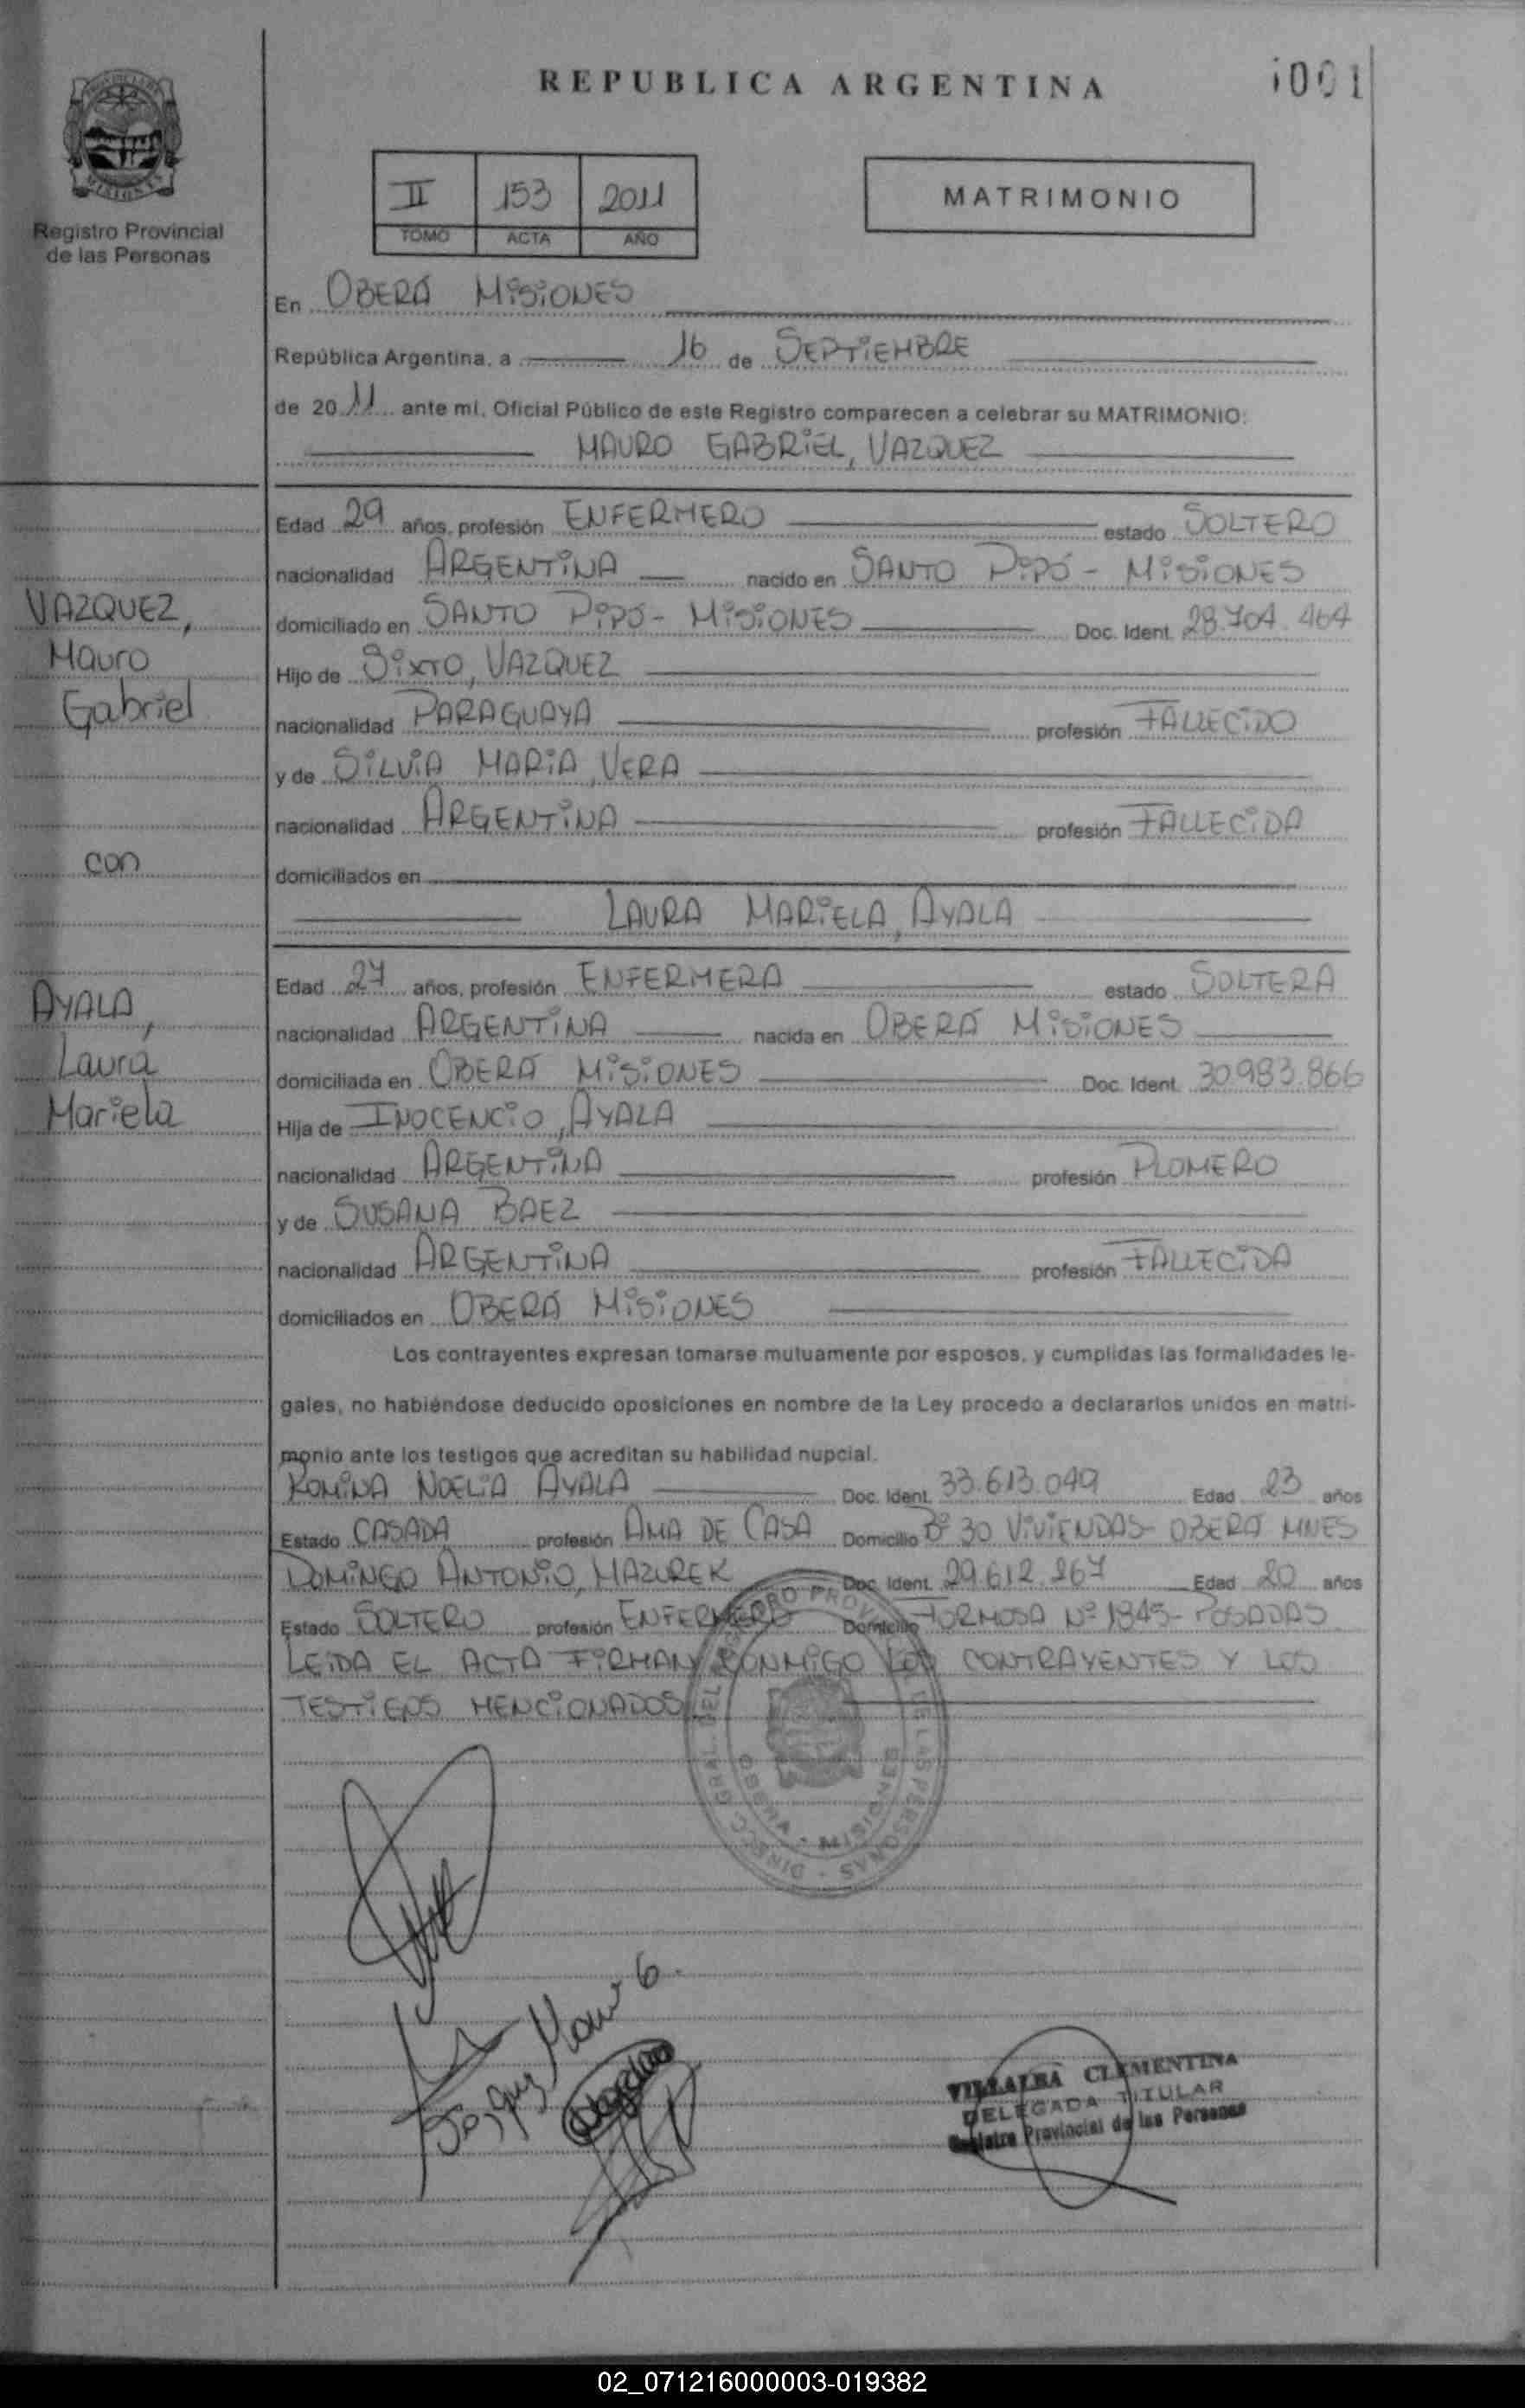 REPUBLICA ARGENTINA
Registro Provincial
de las Personas
II 153 2011
TOMO ACTA AÑO
MATRIMONIO
En OBERÁ MISIONES
República Argentina, a 16 de SEPTIEMBRE
de 2011 ante mí, Oficial Público de este Registro comparecen a celebrar su MATRIMONIO:
MAURO GABRIEL, VAZQUEZ
Edad 29 años, profesión ENFERMERO estado SOLTERO
nacionalidad ARGENTINA nacido en SANTO PIPÓ - MISIONES
VAZQUEZ,
Mauro
Gabriel
domiciliado en SANTO PIPÓ - MISIONES Doc. Ident. 28.704.464
Hijo de SIXTO, VAZQUEZ
nacionalidad PARAGUAYA profesión FALLECIDO
y de SILVIA MARIA, VERA
nacionalidad ARGENTINA profesión FALLECIDA
con
domiciliados en
LAURA MARIELA, AYALA
Edad 27 años, profesión ENFERMERA estado SOLTERA
AYALA,
Laura
Mariela
nacionalidad ARGENTINA nacida en OBERÁ MISIONES
domiciliada en OBERÁ MISIONES Doc. Ident. 30.983.866
Hija de INOCENCIO, AYALA
nacionalidad ARGENTINA profesión PLOMERO
y de SUSANA BAEZ
nacionalidad ARGENTINA profesión FALLECIDA
domiciliados en OBERÁ MISIONES
Los contrayentes expresan tomarse mutuamente por esposos, y cumplidas las formalidades le-
gales, no habiéndose deducido oposiciones en nombre de la Ley procedo a declararlos unidos en matri-
monio ante los testigos que acreditan su habilidad nupcial.
ROMINA NOELIA AYALA Doc. Ident. 33.613.049 Edad 23 años
Estado CASADA profesión AMA DE CASA Domicilio Bº 30 VIVIENDAS - OBERÁ MNES
DOMINGO ANTONIO, MAZUREK Doc. Ident. 29.612.267 Edad 20 años
Estado SOLTERO profesión ENFERMERO Domicilio FORMOSA Nº 1845 - POSADAS
LEIDA EL ACTA FIRMAN CONMIGO LOS CONTRAYENTES Y LOS
TESTIGOS MENCIONADOS
VILLALBA CLEMENTINA
DELEGADA TITULAR
Registro Provincial de las Personas
02_071216000003-019382